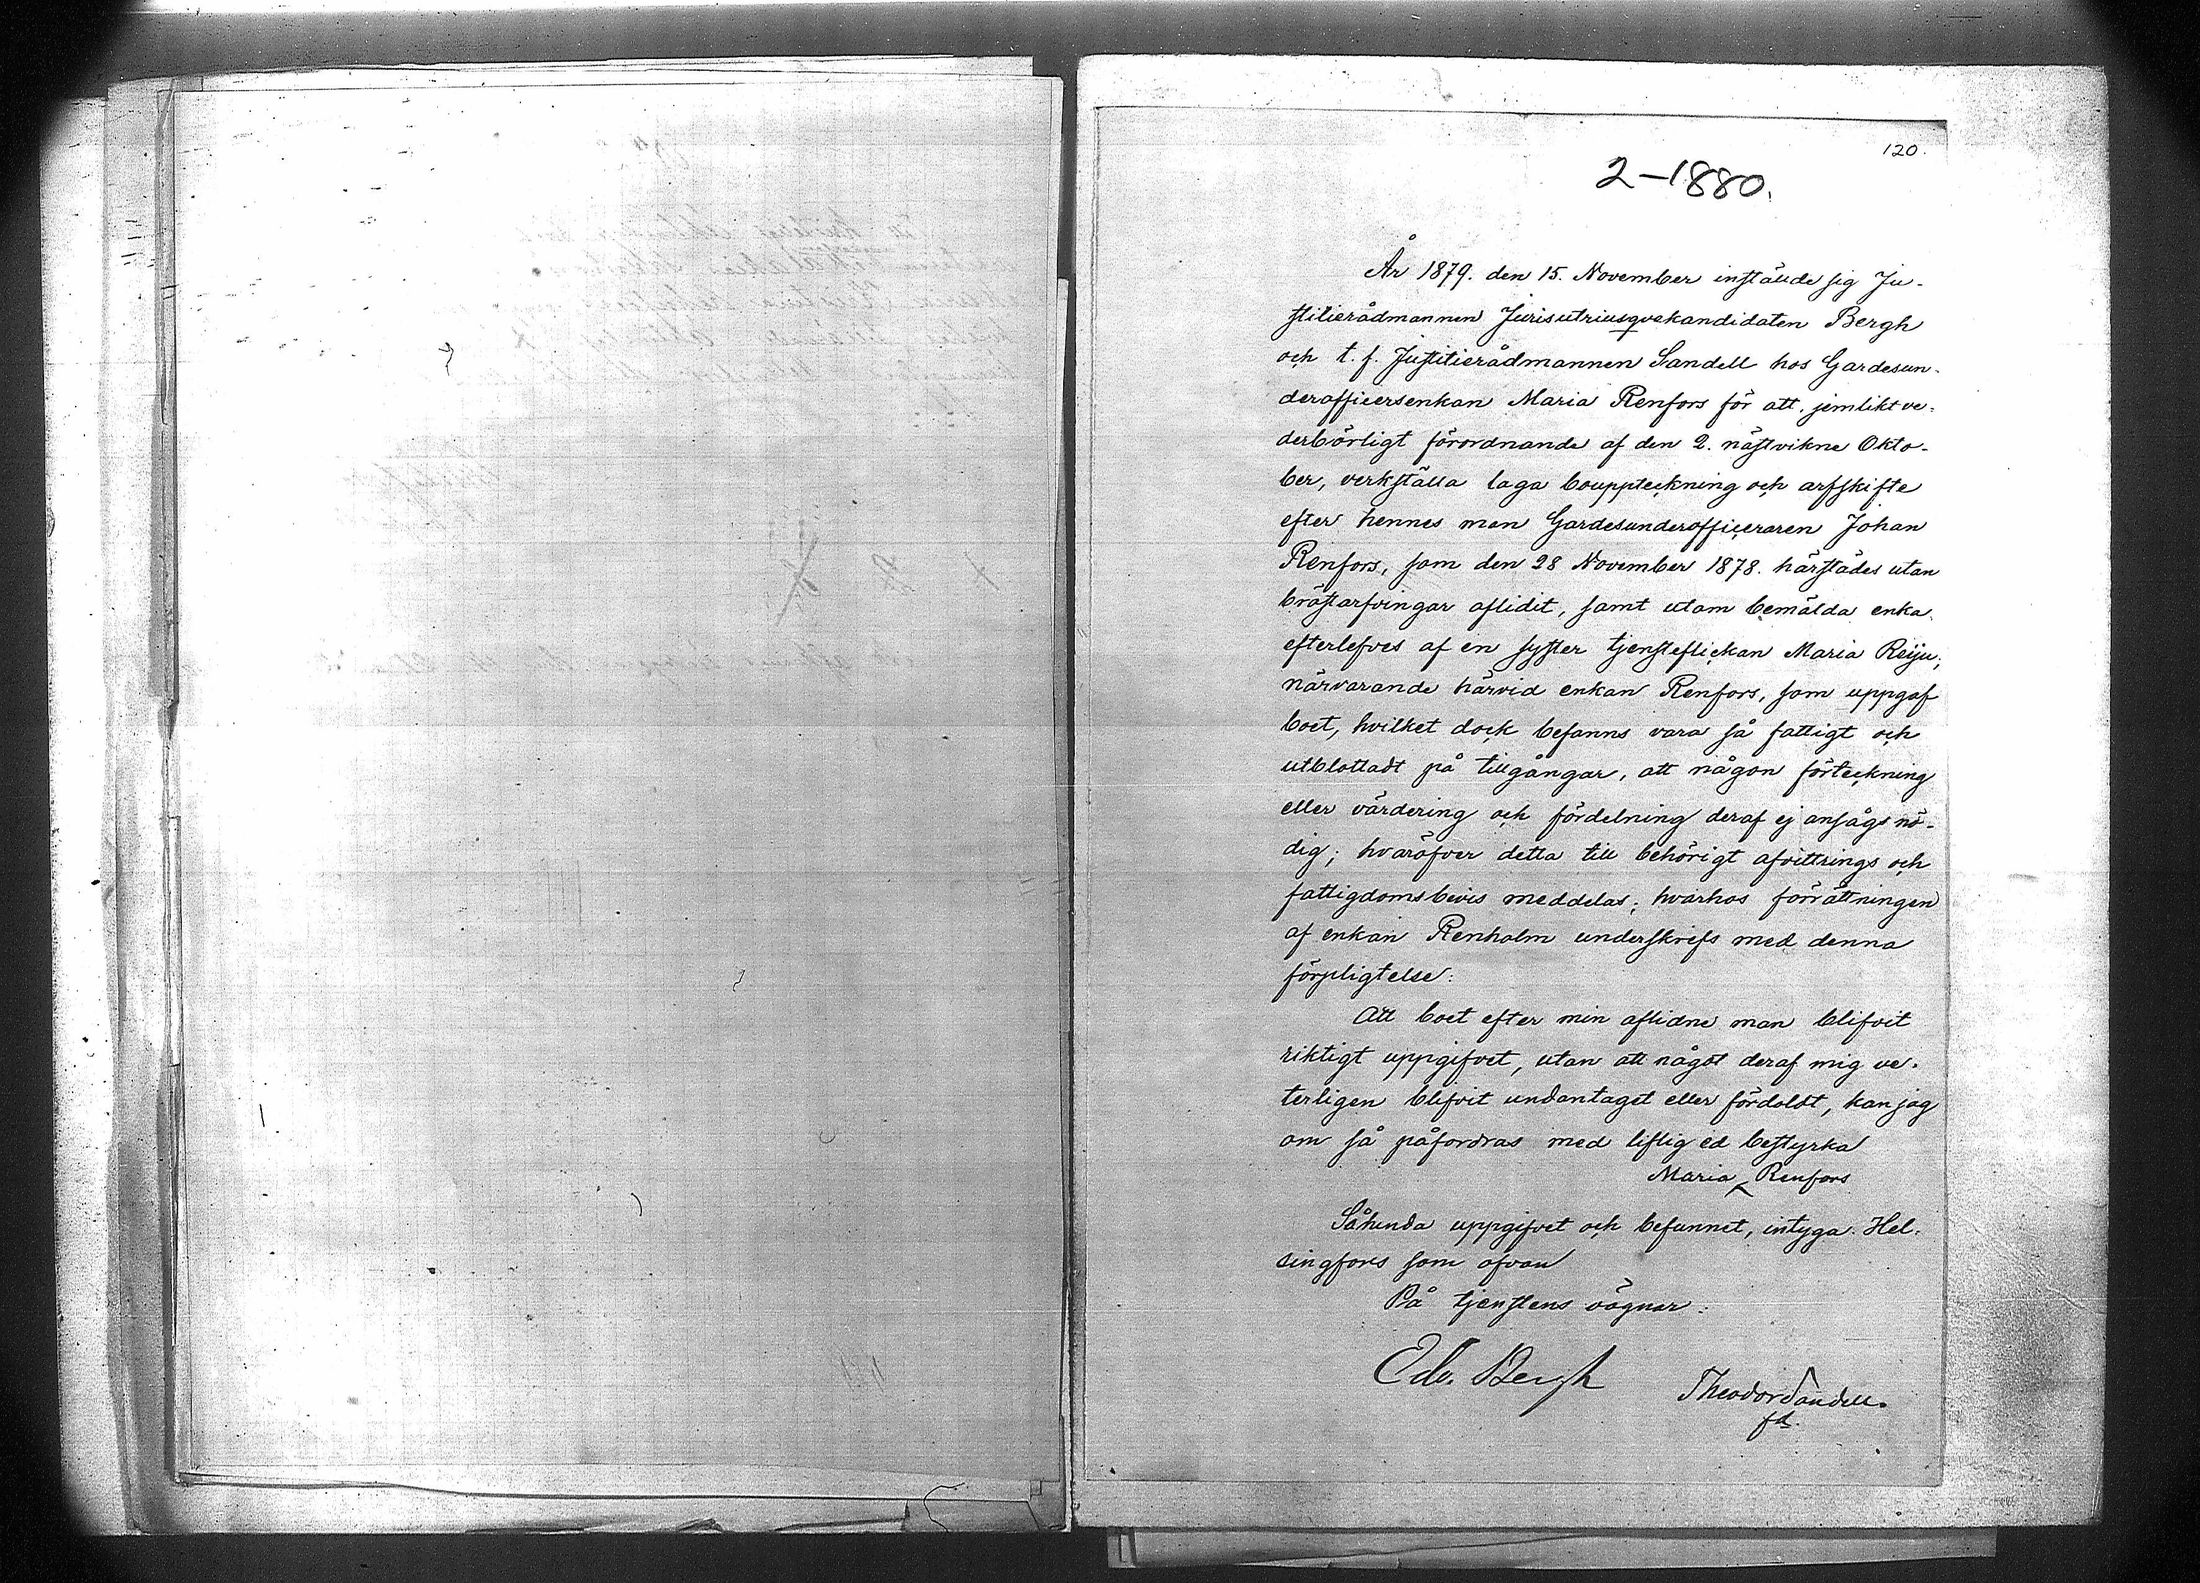 120.
2-1880.
År 1879. den 15. November instälde sig Ju-
stitierådmannen Jurisutriusqvekandidaten Bergh
och t. f. Justitierådmannen Sandell hos Gardesun-
derofficersenkan Maria Renfors för att jemlikt ve-
derbörligt förordnande af den 2. nästvikne Okto-
ber, verkställa laga bouppteckning och arfskifte
efter hennes man Gardesunderofficeraren Johan
Renfors, som den 28 November 1878. härstädes utan
bröstarfvingar aflidit, samt utom bemälda enka
efterlefves af en syster tjensteflickan Maria Reiju;
närvarande härvid enkan Renfors, som uppgaf
boet, hvilket dock befanns vara så fattigt och
utblottadt på tillgångar, att någon förteckning
eller värdering och fördelning deraf ej ansågs nö-
dig; hvaröfver detta till behörigt afvittrings och
fattigdomsbevis meddelas; hvarhos förrättningen
af enkan Renholm underskrefs med denna
förpligtelse:
Att boet efter min aflidne man blifvit
riktigt uppgifvet, utan att något deraf mig ve-
terligen blifvit undantaget eller fördoldt, kan jag
om så påfordras med liflig ed bestyrka
Maria Renfors
Sålunda uppgifvet och befunnet, intyga. Hel-
singfors som ofvan
På tjenstens vägnar:
Edv. Bergh
Theodor Sandell.
fd.